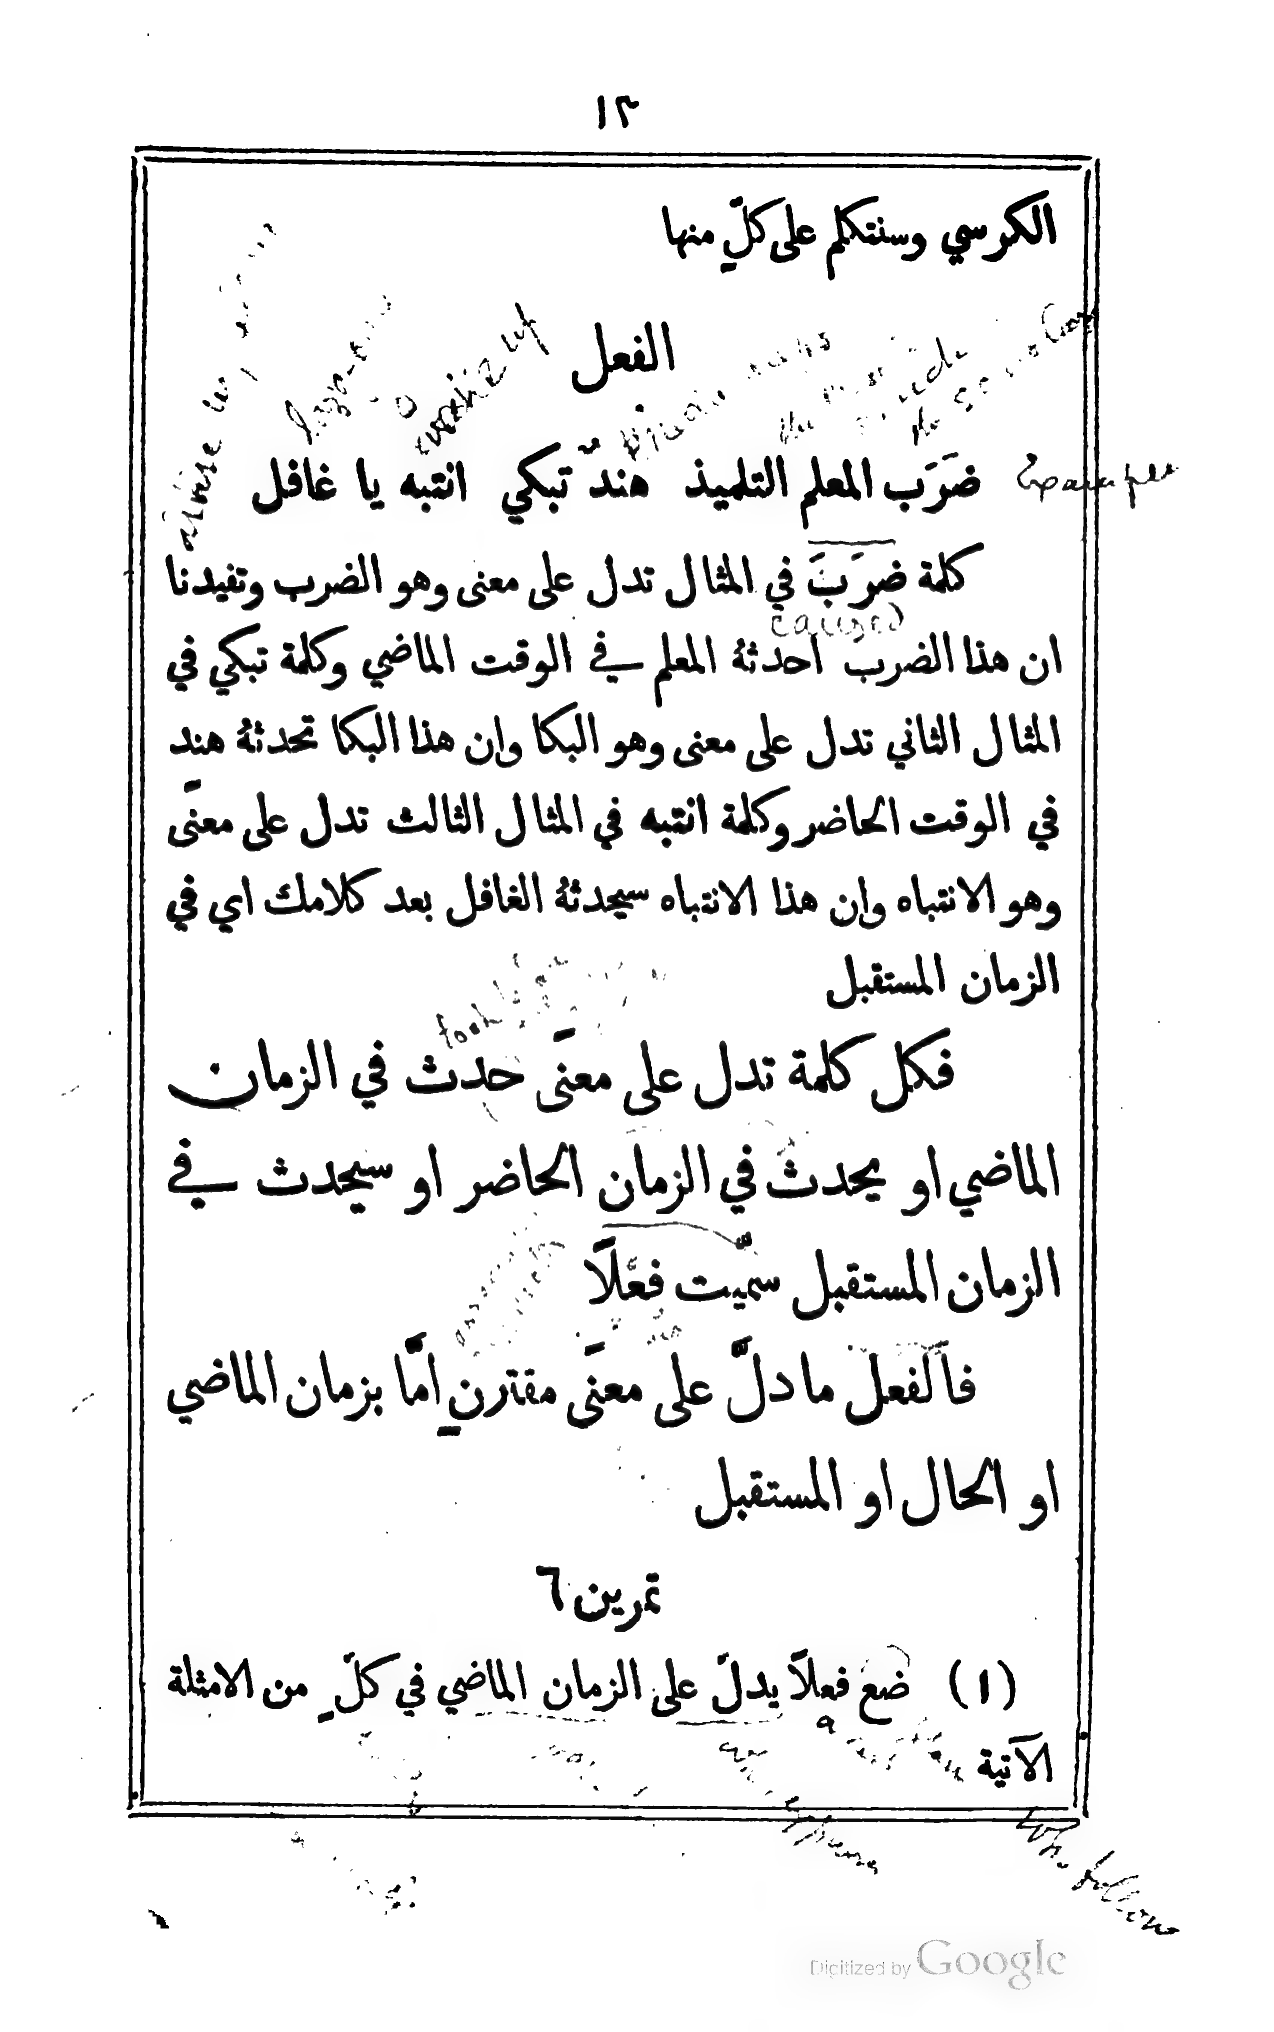 ١٢
الكرسي وسنتكلم على كلٍّ منها
الفعل
ضَرَب المعلم التلميذ هندٌ تبكي انتبه يا غافل
Examples
كلمة ضرَبَ في المثال تدل على معنى وهو الضرب وتفيدنا
caused
ان هذا الضرب احدثهُ المعلم في الوقت الماضي وكلمة تبكي في
المثال الثاني تدل على معنى وهو البكا وان هذا البكا تحدثهُ هندٍ
في الوقت الحاضر وكلمة انتبه في المثال الثالث تدل على معنى
وهو الانتباه وان هذا الانتباه سيحدثهُ الغافل بعد كلامك اي في
الزمان المستقبل
took
فكل كلمة تدل على معنًى حدث في الزمان
الماضي او يحدث في الزمان الحاضر او سيحدث في
الزمان المستقبل سمّيت فعلًا
فالفعل ما دلَّ على معنًى مقترنٍ امَّا بزمان الماضي
او الحال او المستقبل
تمرين ٦
(١) ضع فعلاً يدلّ على الزمان الماضي في كلٍّ من الامثلة
الآتية
who follow
Digitized by Google